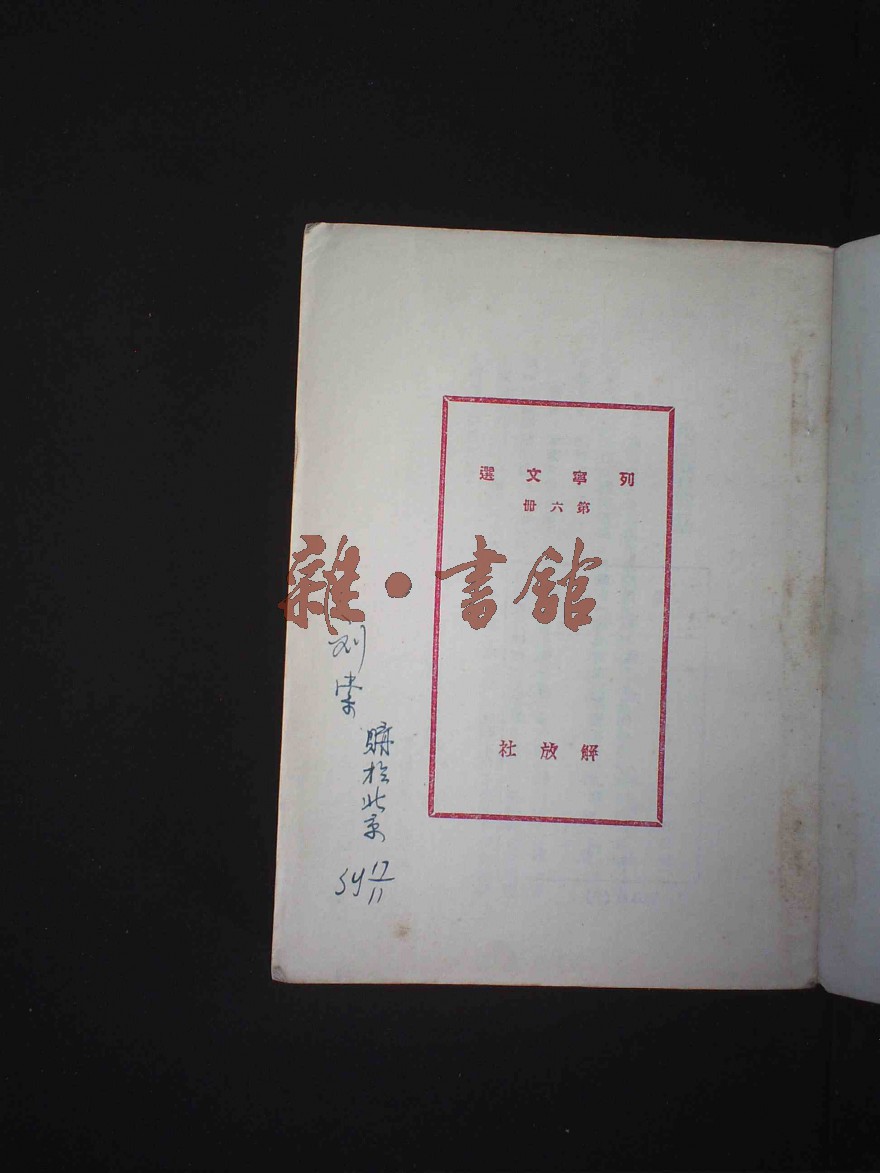 列寧文選
第六冊
雜·書館
解放社
刘
購於北京
54 17/11